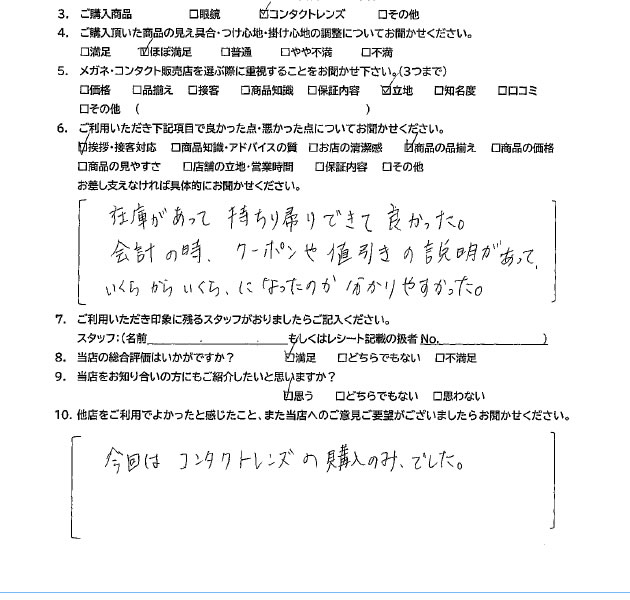 3. ご購入商品 □眼鏡 ☑コンタクトレンズ □その他
4. ご購入頂いた商品の見え具合・つけ心地・掛け心地の調整についてお聞かせください。
□満足 ☑ほぼ満足 □普通 □やや不満 □不満
5. メガネ・コンタクト販売店を選ぶ際に重視することをお聞かせ下さい。(3つまで)
□価格 □品揃え □接客 □商品知識 □保証内容 ☑立地 □知名度 □口コミ
□その他 ( )
6. ご利用いただき下記項目で良かった点・悪かった点についてお聞かせください。
☑挨拶・接客対応 □商品知識・アドバイスの質 □お店の清潔感 ☑商品の品揃え □商品の価格
□商品の見やすさ □店舗の立地・営業時間 □保証内容 □その他
お差し支えなければ具体的にお聞かせください。
在庫があって 持ちり帰りできて 良かった。
会計の時、クーポンや値引きの説明があって、
いくらからいくら、になったのか分かりやすかった。
7. ご利用いただき印象に残るスタッフがおりましたらご記入ください。
スタッフ:(名前 もしくはレシート記載の扱者 No. )
8. 当店の総合評価はいかがですか? ☑満足 □どちらでもない □不満足
9. 当店をお知り合いの方にもご紹介したいと思いますか?
☑思う □どちらでもない □思わない
10. 他店をご利用でよかったと感じたこと、また当店へのご意見ご要望がございましたらお聞かせください。
今回は コンタクトレンズの購入のみ、でした。